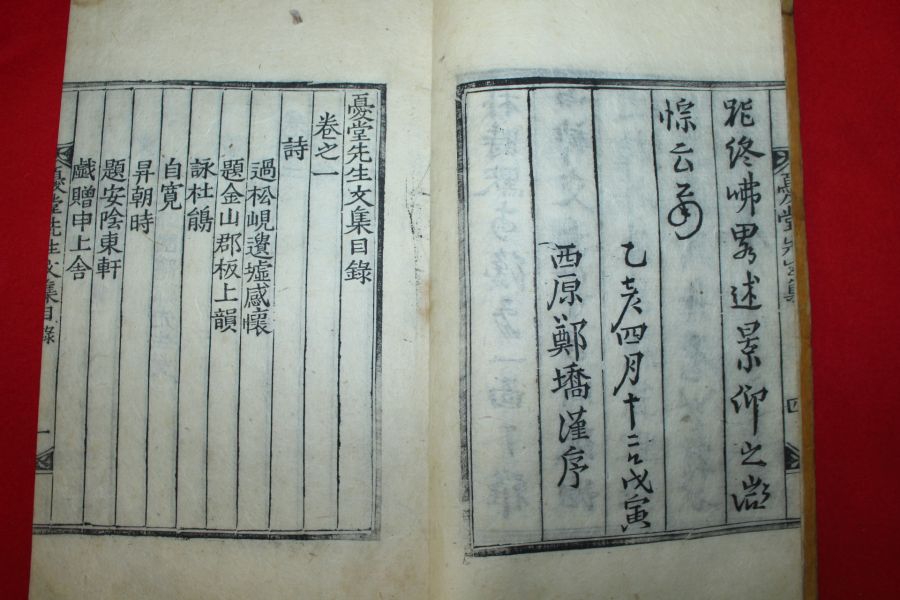 憂堂先生文集
四
終咈畧述景仰之微
悰云爾
乙亥四月十二日戊寅
西原鄭墧謹序
憂堂先生文集目錄
卷之一
詩
過松峴遺墟感懷
題金山郡板上韻
詠杜鵑
自寬
昇朝時
題安陰東軒
戱贈申上舍
憂堂先生文集目錄
一